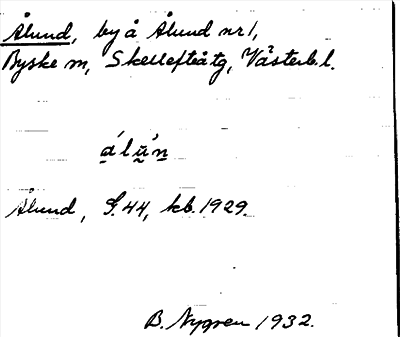 Ålund, by å Ålund nr 1,
Byske sn, Skellefteå tg, Västerb. l.
Ålund, S. 44, kb. 1929.
B. Nygren 1932.